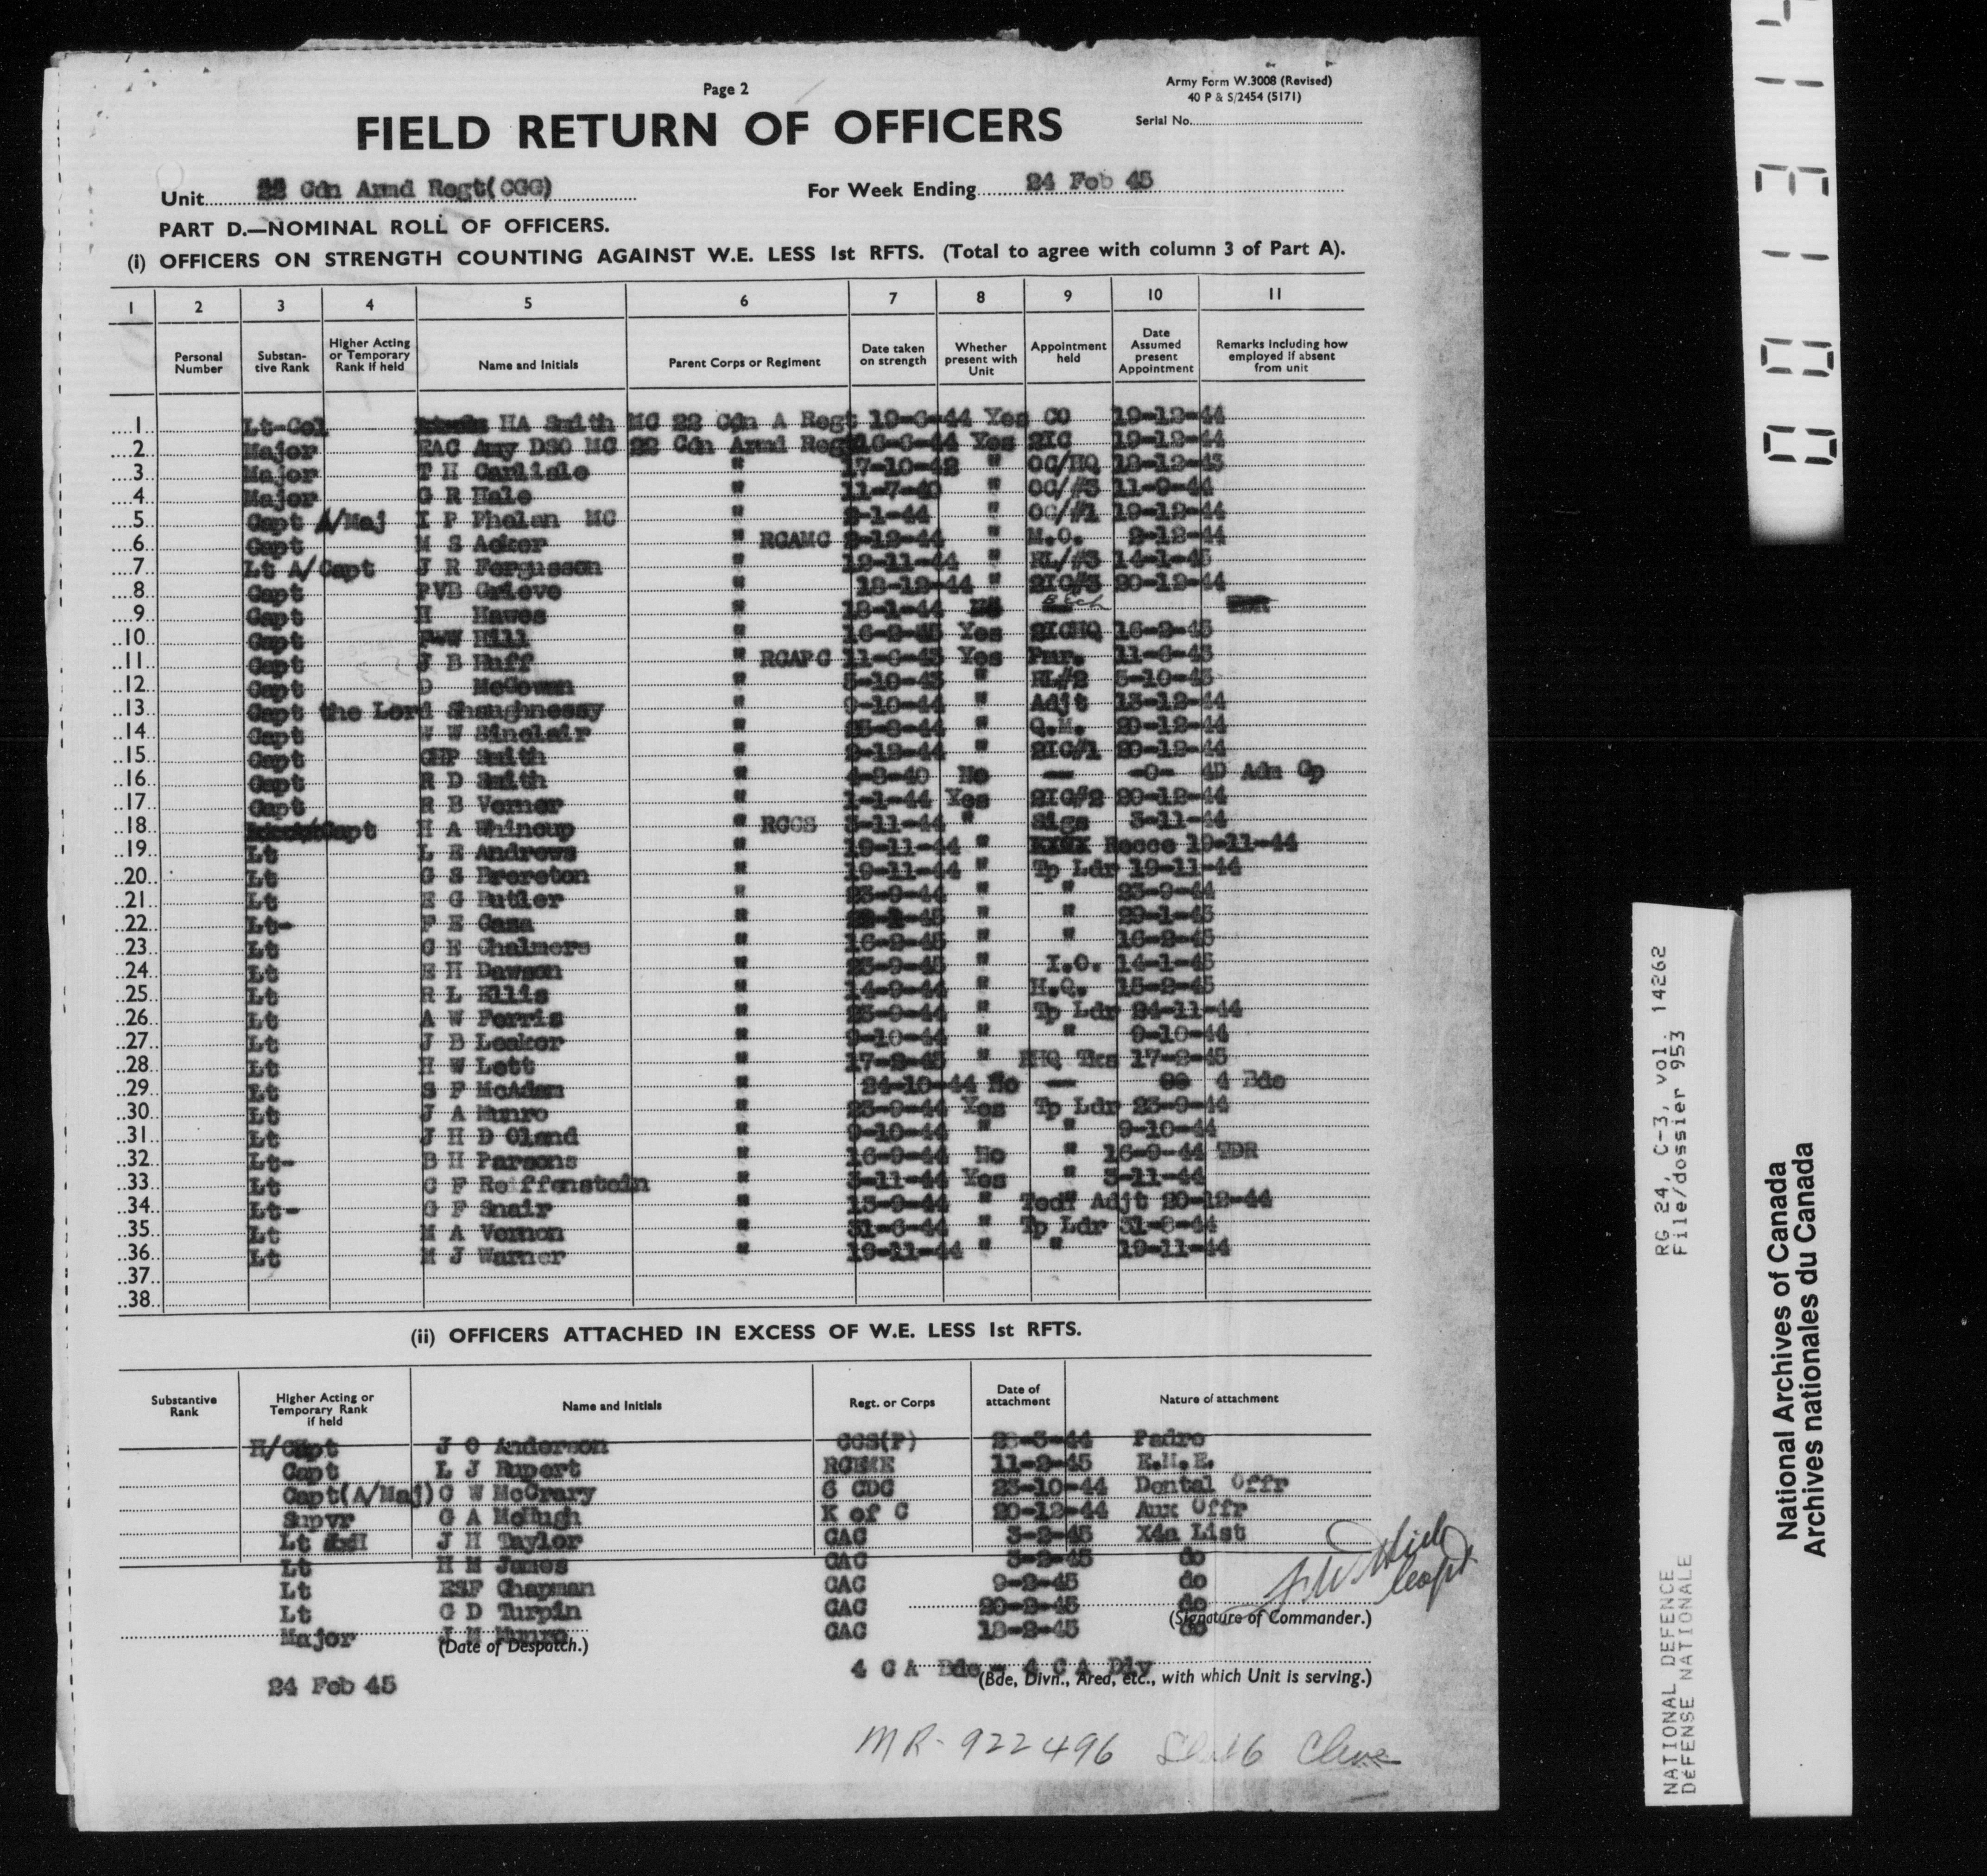 Page 2
Army Form W.3008 (Revised)
40 P & S/2454 (5171)
Serial No.
FIELD RETURN OF OFFICERS
Unit 22 Cdn Armd Regt(CGG) For Week Ending 24 Feb 45
PART D.—NOMINAL ROLL OF OFFICERS.
(i) OFFICERS ON STRENGTH COUNTING AGAINST W.E. LESS 1st RFTS. (Total to agree with column 3 of Part A).
1 2 3 4 5 6 7 8 9 10 11
Personal Number Substantive Rank Higher Acting or Temporary Rank if held Name and Initials Parent Corps or Regiment Date taken on strength Whether present with Unit Appointment held Date Assumed present Appointment Remarks Including how employed if absent from unit
1 Lt-Col HA Smith MC 22 Cdn A Regt 19-6-44 Yes CO 19-12-44
2 Major EAC Amy DSO MC 22 Cdn Armd Reg 16-6-44 Yes 2IC 19-12-44
3 Major T H Carlisle " 17-10-42 " OC/HQ 18-12-43
4 Major G R Hale " 11-7-40 " OC/#3 11-9-44
5 Capt A/Maj I P Phelan MC " 2-1-44 " OC/#1 19-12-44
6 Capt M S Acker " RCAMC 2-12-44 " M.O. 2-12-44
7 Lt A/Capt J R Fergusson " 12-11-44 " RL/#3 14-1-45
8 Capt PVB Grieve " 18-12-44 " 2IC#3 20-12-44
9 Capt H Hawes " 18-1-44
10 Capt Hill " 16-2-45 Yes 2ICHQ 16-2-45
11 Capt J B Huff " RCAPC 11-6-43 Yes Pmr. 11-6-43
12 Capt D McGowan " 5-10-43 " RL#2 5-10-43
13 Capt the Lord Shaughnessy " 9-10-44 " Adjt 13-12-44
14 Capt W W Sinclair " 25-8-44 " Q.M. 20-12-44
15 Capt GHP Smith " 9-12-44 " 2IC/1 20-12-44
16 Capt R D Smith " 4-8-40 No — -0- 4D Adm Gp
17 Capt R B Verner " 1-1-44 Yes 2IC#2 20-12-44
18 Capt H A Whincup " RCCS 3-11-44 " Sigs 3-11-44
19 Lt L E Andrews " 19-11-44 " Recce 19-11-44
20 Lt G S Brereton " 19-11-44 " Tp Ldr 19-11-44
21 Lt E G Butler " 23-9-44 " " 23-9-44
22 Lt- F E Casa " " " 29-1-45
23 Lt G E Chalmers " 16-2-45 " " 16-2-45
24 Lt E H Dawson " 23-9-45 " I.O. 14-1-45
25 Lt R L Ellis " 14-9-44 " H.Q. 15-2-45
26 Lt A W Ferris " 23-9-44 " Tp Ldr 24-11-44
27 Lt J B Leaker " 9-10-44 " " 9-10-44
28 Lt H W Lett " 17-2-45 " RHQ Tks 17-2-45
29 Lt S F McAdam " 24-10-44 No — 4 Bde
30 Lt J A Munro " 23-9-44 Yes Tp Ldr 23-9-44
31 Lt J H D Oland " 9-10-44 " " 9-10-44
32 Lt- B H Parsons " 16-9-44 No " 16-9-44 TDR
33 Lt G F Reiffenstein " 3-11-44 Yes " 3-11-44
34 Lt- G F Snair " 13-9-44 " Tech Adjt 20-12-44
35 Lt M A Vernon " 31-8-44 " Tp Ldr 31-8-44
36 Lt M J Warner " 19-11-44 " " 19-11-44
37
38
(ii) OFFICERS ATTACHED IN EXCESS OF W.E. LESS 1st RFTS.
Substantive Rank Higher Acting or Temporary Rank if held Name and Initials Regt. or Corps Date of attachment Nature of attachment
H/Capt J O Anderson CCS(P) 28-3-44 Padre
Capt L J Rupert RCEME 11-2-45 E.M.E.
Capt(A/Maj) G W McCrary 6 CDC 23-10-44 Dental Offr
Supvr G A McHugh K of C 20-12-44 Aux Offr
Lt J H Taylor CAC 3-2-45 X4a List
Lt H M James CAC 3-2-45 do
Lt ESF Chapman CAC 9-2-45 do
Lt G D Turpin CAC 20-2-45 do
Major J M Munro CAC 18-2-45 do
(Date of Despatch.) (Signature of Commander.)
24 Feb 45
4 C A Bde - 4 C A Div
(Bde, Divn., Area, etc., with which Unit is serving.)
MR-922496
00131
RG 24, C-3, vol. 14262
File/dossier 953
NATIONAL DEFENCE
DÉFENSE NATIONALE
National Archives of Canada
Archives nationales du Canada